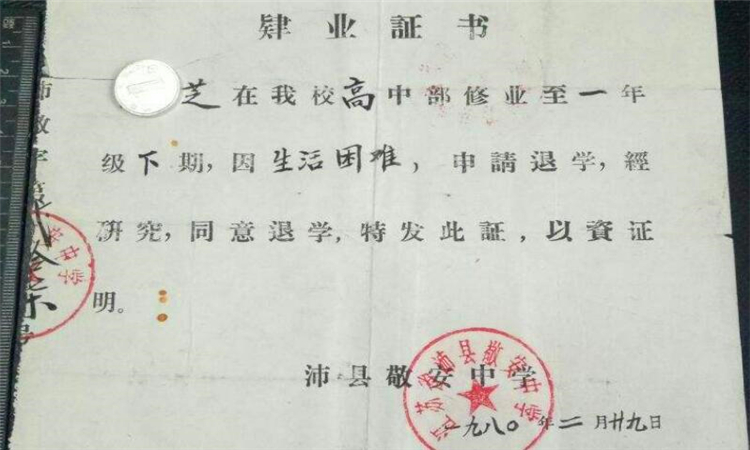 肄业証书
芝在我校高中部修业至一年
级下期,因生活困难,申請退学,經
研究,同意退学,特发此証,以資证
明。
沛县敬安中学
江苏省沛县敬安中学
一九八〇年二月廿九日
沛敬字第
安中学
号